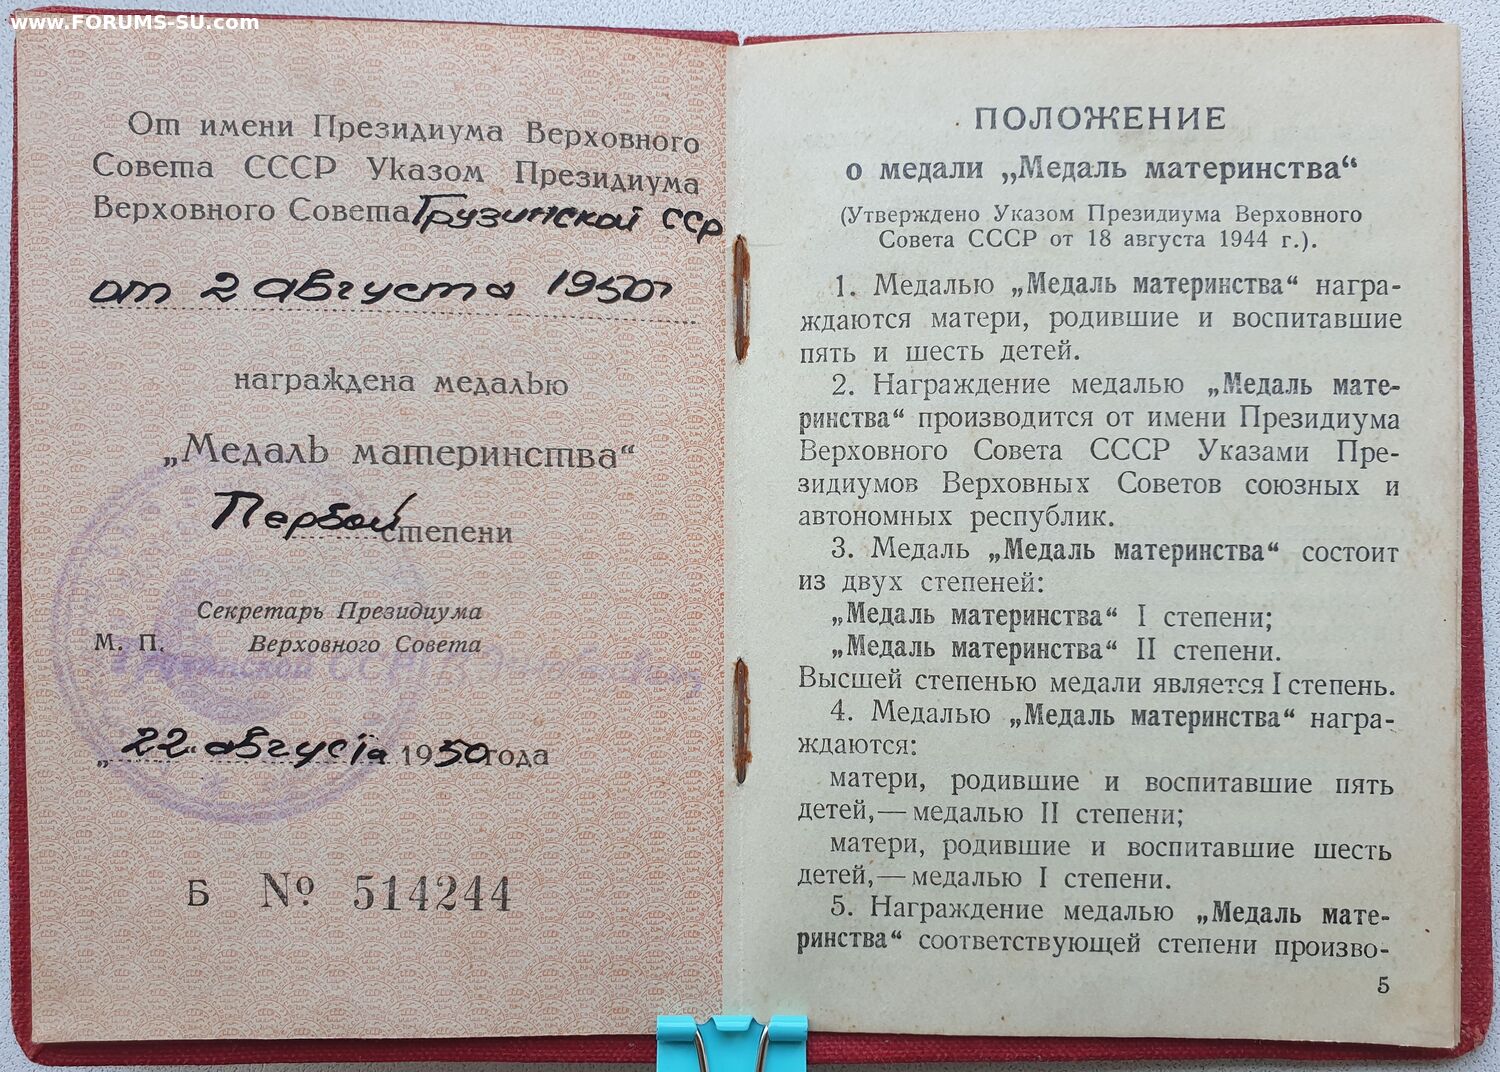 www.FORUMS-SU.com
От имени Президиума Верховного
Совета СССР Указом Президиума
Верховного Совета Грузинской ССР
от 2 августа 1950г
награждена медалью
„Медаль материнства“
Первой степени
Секретарь Президиума
М. П. Верховного Совета
Грузинской ССР
„22“ августа 1950 года
Б № 514244
ПОЛОЖЕНИЕ
о медали „Медаль материнства“
(Утверждено Указом Президиума Верховного
Совета СССР от 18 августа 1944 г.).
1. Медалью „Медаль материнства“ награ-
ждаются матери, родившие и воспитавшие
пять и шесть детей.
2. Награждение медалью „Медаль мате-
ринства“ производится от имени Президиума
Верховного Совета СССР Указами Пре-
зидиумов Верховных Советов союзных и
автономных республик.
3. Медаль „Медаль материнства“ состоит
из двух степеней:
„Медаль материнства“ I степени;
„Медаль материнства“ II степени.
Высшей степенью медали является I степень.
4. Медалью „Медаль материнства“ награ-
ждаются:
матери, родившие и воспитавшие пять
детей,—медалью II степени;
матери, родившие и воспитавшие шесть
детей,—медалью I степени.
5. Награждение медалью „Медаль мате-
ринства“ соответствующей степени произво-
5